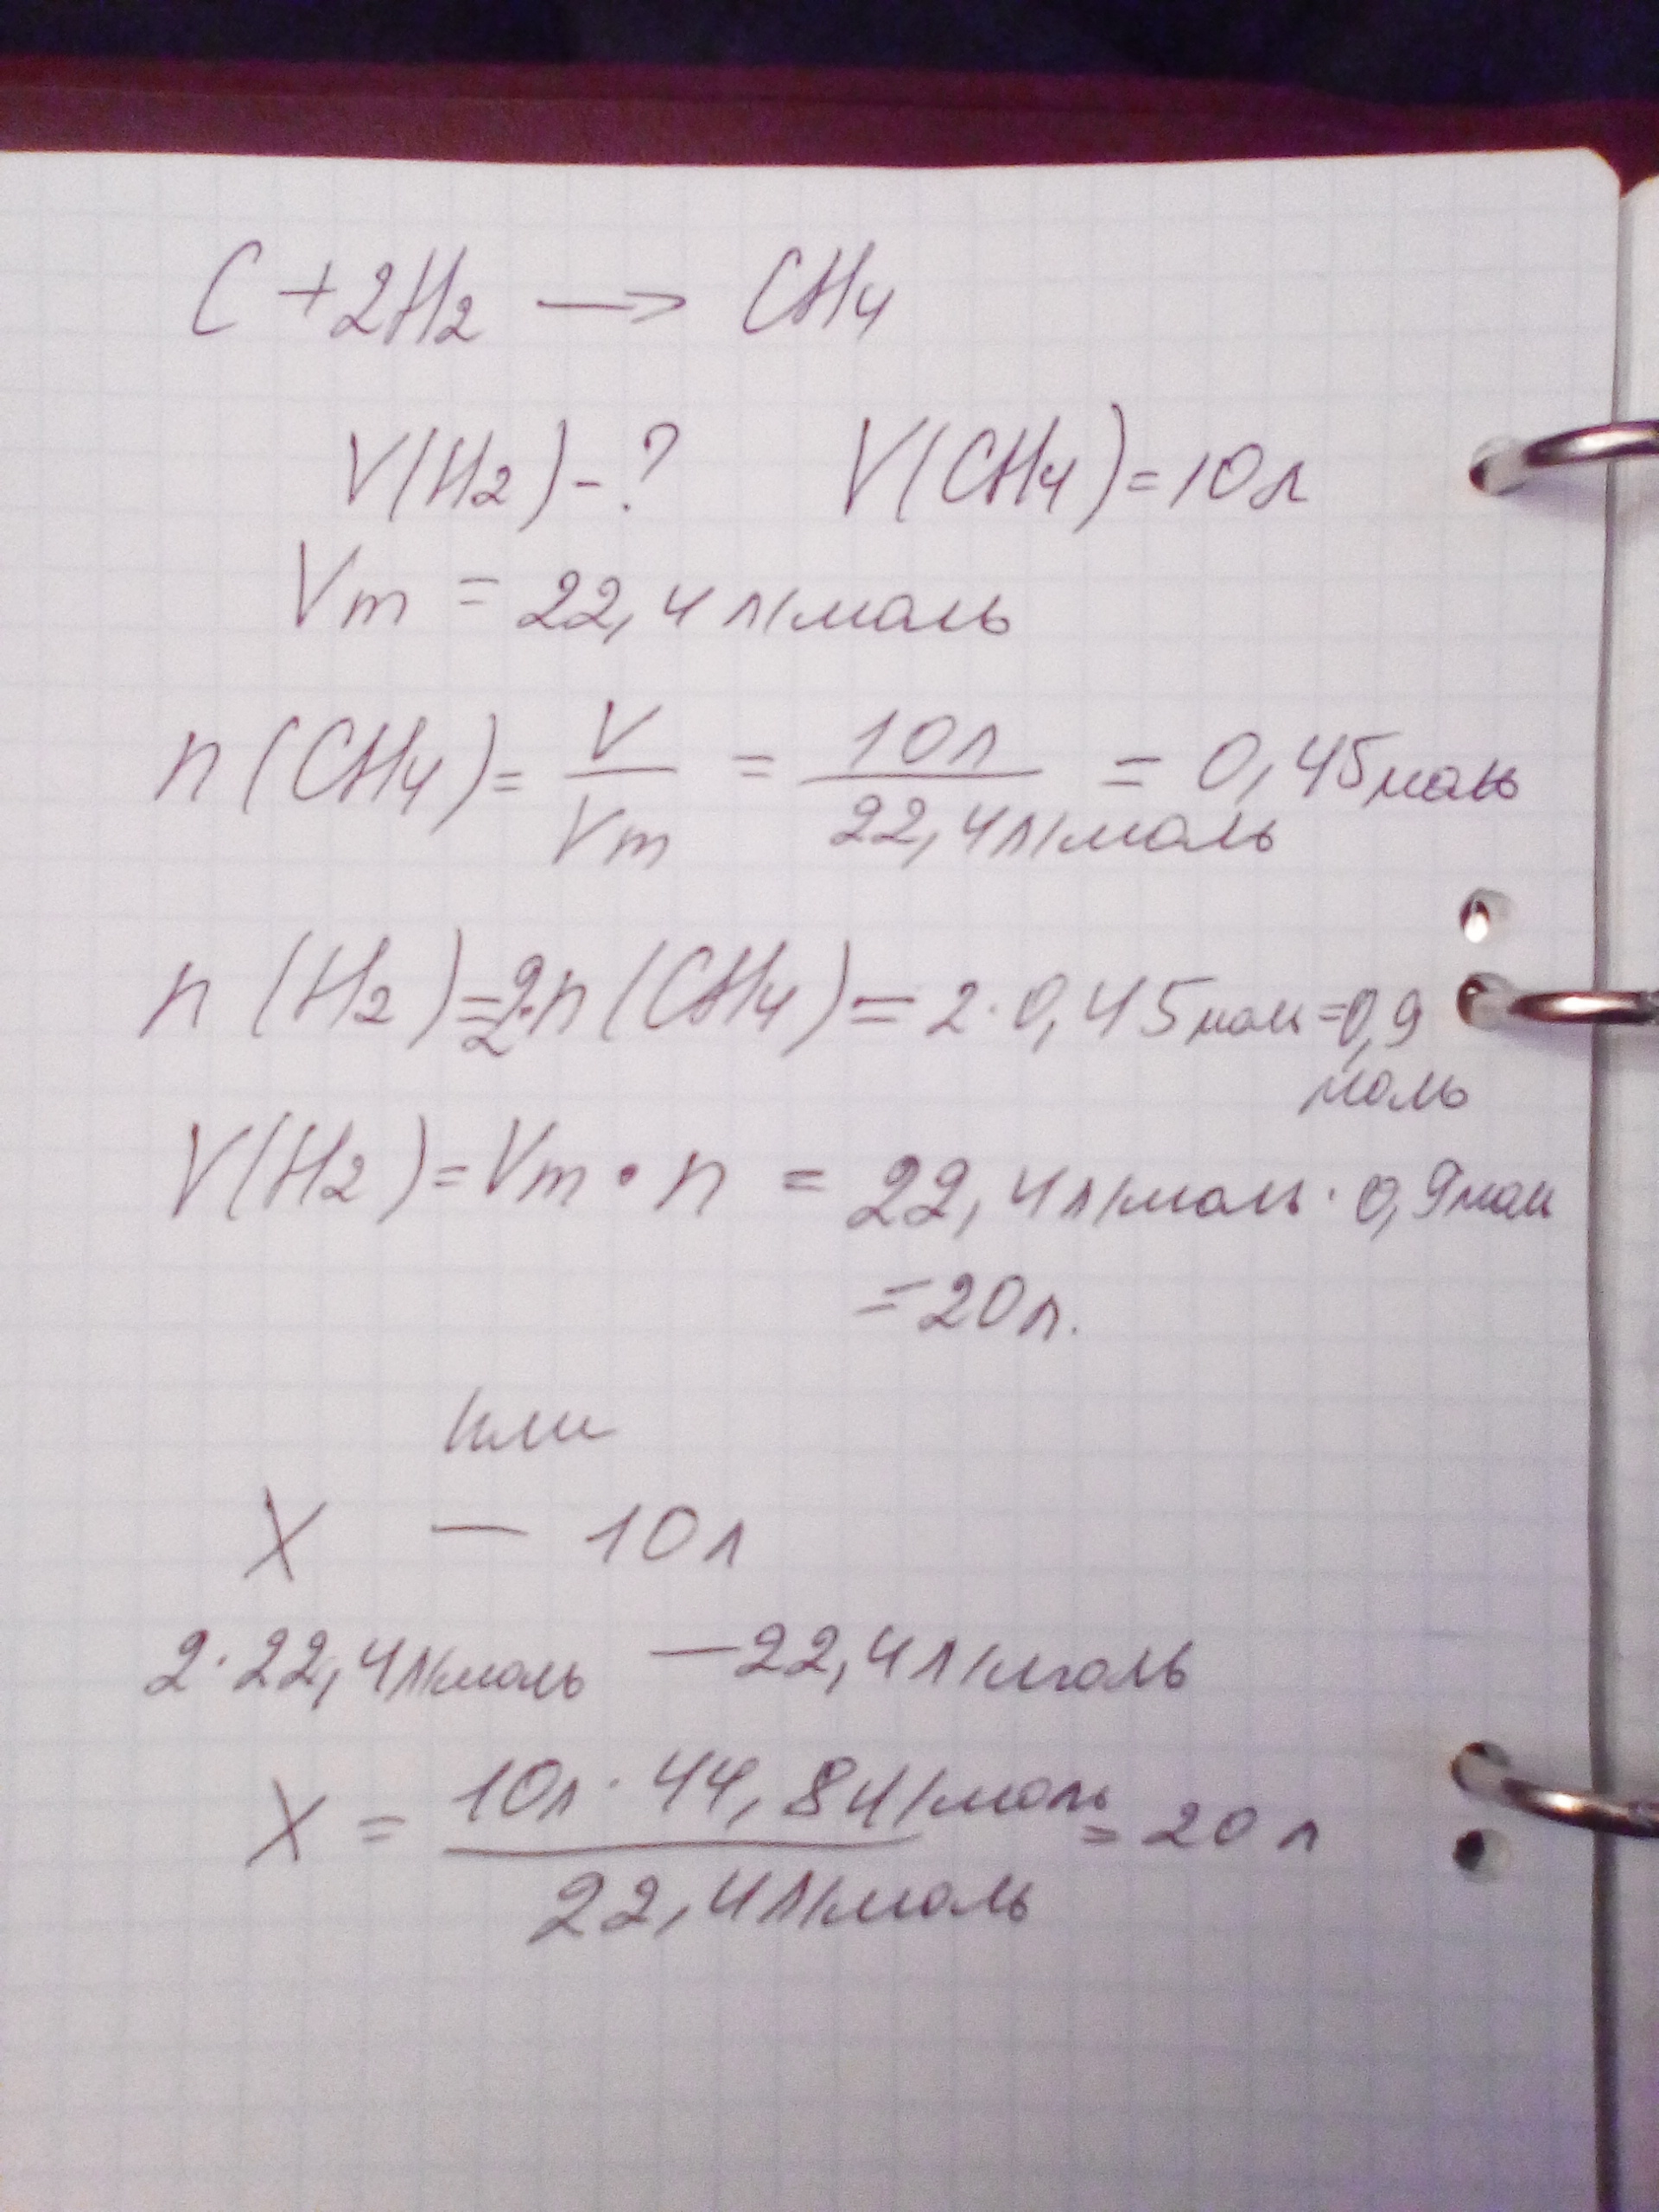 C + 2H2 → CH4
V(H2) - ? V(CH4) = 10 л
Vm = 22,4 л/моль
n (CH4) = V/Vm = 10 л/22,4 л/моль = 0,45 моль
n (H2) = 2·n (CH4) = 2·0,45 моль = 0,9
моль
V(H2) = Vm · n = 22,4 л/моль · 0,9 моль
= 20 л.
или
X — 10 л
2·22,4 л/моль — 22,4 л/моль
X = 10 л · 44,8 л/моль / 22,4 л/моль = 20 л